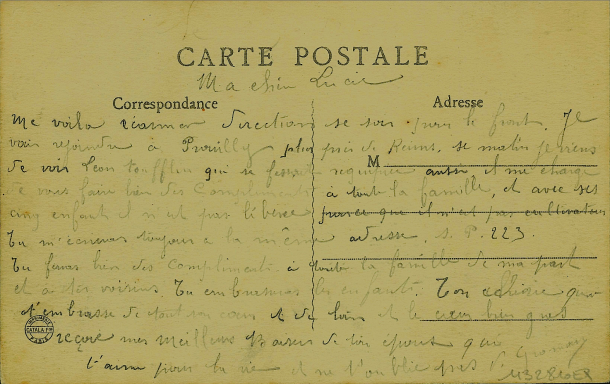 CARTE POSTALE
Ma chère Lucie
Correspondance
Adresse
Me voila direction se soir pour le front. Je
vais rejoindre à Prouilly plus près de Reims, se matin je viens
M
de voir Léon qui se aussi, il me charge
de vous faire bien des Compliments à toute la famille, et avec ses
cinq enfant il n'est pas libéré parce que il n'est pas cultivateur
Tu m'écriras toujours a la même adresse, S. P. 223.
Tu feras bien des Compliments à toute la famille de ma part
et a ses voisins Tu embrasseras les enfants. Ton chéri qui
t'embrasse de tout son cœur et de loin et le cœur bien gros
reçois mes meilleurs Baisers de ton époux qui
t'aime pour la vie et ne t'oublie pas
IMPRIMERIE
CATALA Frères
PARIS